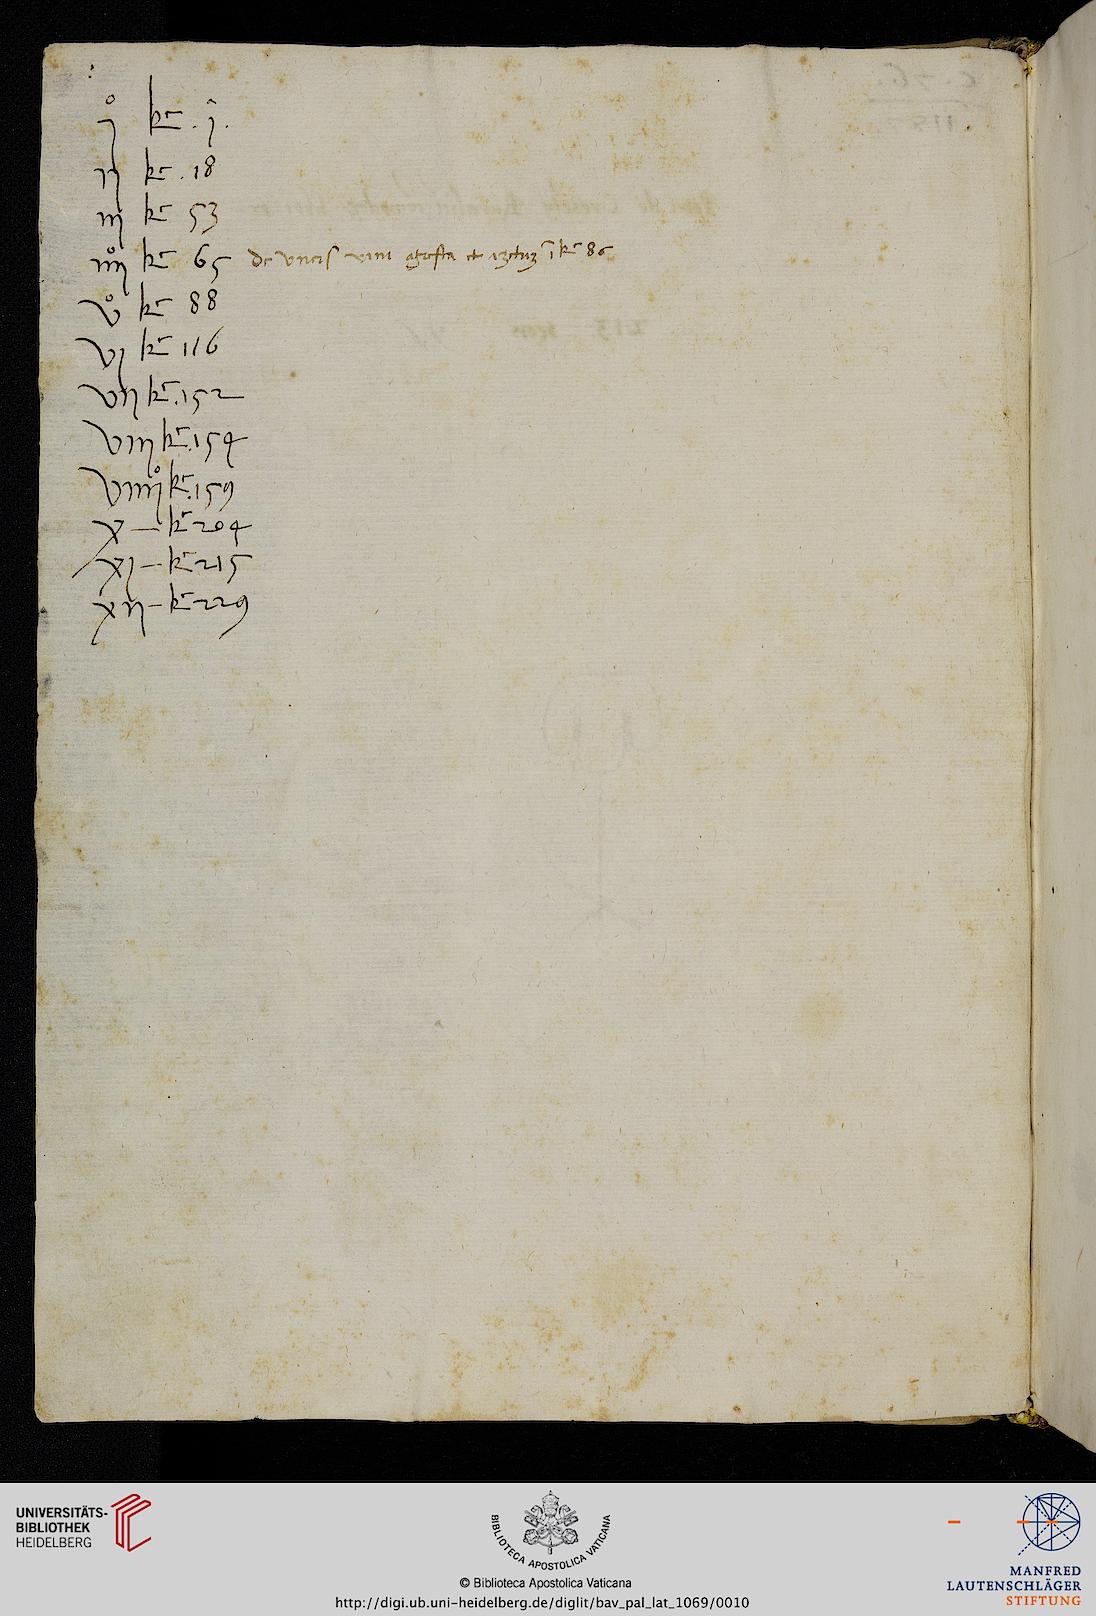 j° k. j.
ij k. 18
iij k 53
iiij° k 65 de uncis vini agresta et k 86
v° k 88
vj k 116
vij k. 152
viij k. 154
viiij° k. 159
x — k 204
xj — k 215
xij — k 229
UNIVERSITÄTS-
BIBLIOTHEK
HEIDELBERG
BIBLIOTECA APOSTOLICA VATICANA
© Biblioteca Apostolica Vaticana
http://digi.ub.uni-heidelberg.de/diglit/bav_pal_lat_1069/0010
MANFRED
LAUTENSCHLÄGER
STIFTUNG